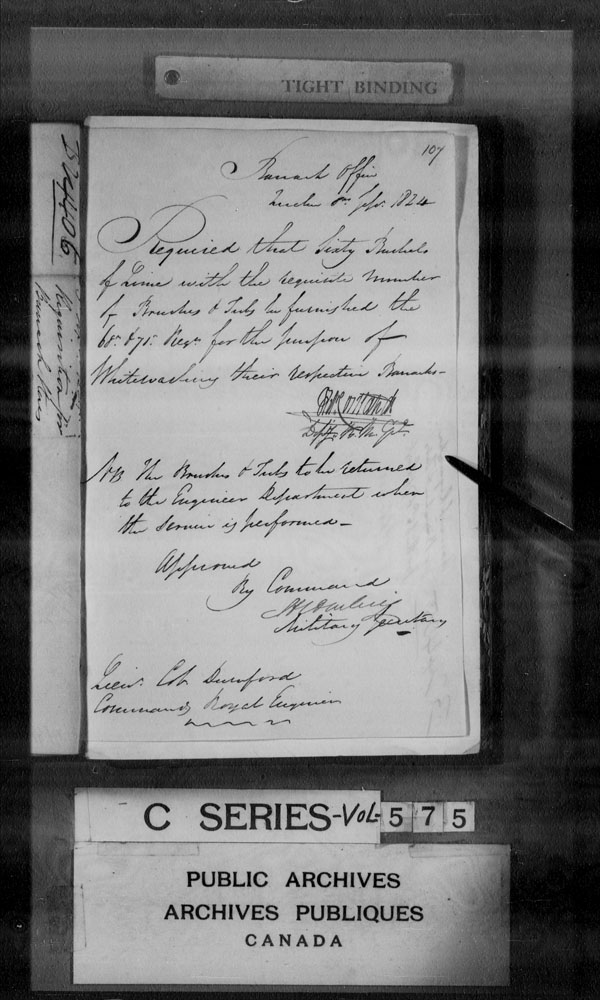 TIGHT BINDING
107
Barrack Office
Quebec 8th Septr. 1824
Required that Sixty Bushels
of Lime with the requisite number
of Brushes & Tubs be furnished the
68th & 71st Regts for the purpose of
Whitewashing their respective Barracks—
NB The Brushes & Tubs to be returned
to the Engineer Department when
the service is performed—
Approved
By Command
Military Secretary
Lieut. Col. Durnford
Commandg Royal Engineer
C SERIES-VOL-575
PUBLIC ARCHIVES
ARCHIVES PUBLIQUES
CANADA